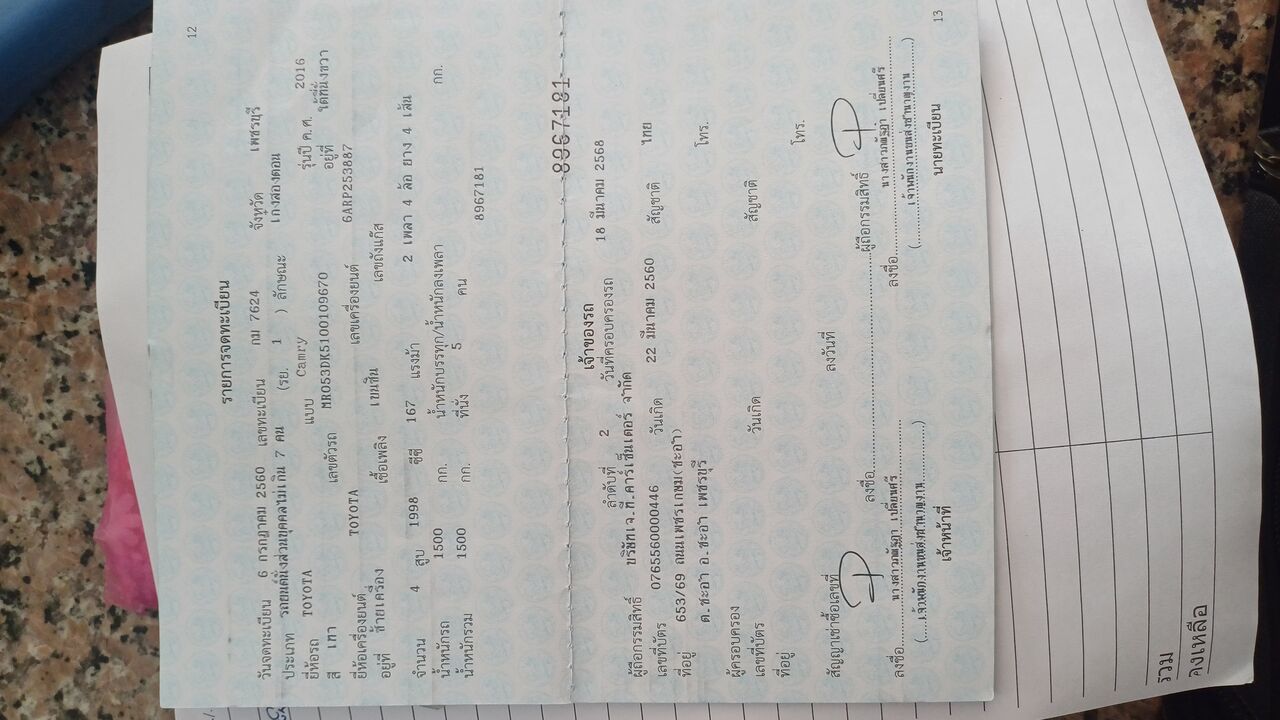 12
รายการจดทะเบียน
วันจดทะเบียน 6 กรกฎาคม 2560 เลขทะเบียน กม 7624 จังหวัด เพชรบุรี
ประเภท รถยนต์นั่งส่วนบุคคลไม่เกิน 7 คน (รย. 1 ) ลักษณะ เก๋งสองตอน
ยี่ห้อรถ TOYOTA แบบ Camry รุ่นปี ค.ศ. 2016
สี เทา เลขตัวรถ MR053DK5100109670 อยู่ที่ ใต้ที่นั่งขวา
ยี่ห้อเครื่องยนต์ TOYOTA เลขเครื่องยนต์ 6ARP253887
อยู่ที่ ซ้ายเครื่อง เชื้อเพลิง เบนซิน เลขถังแก๊ส
จำนวน 4 สูบ 1998 ซีซี 167 แรงม้า 2 เพลา 4 ล้อ ยาง 4 เส้น
น้ำหนักรถ 1500 กก. น้ำหนักบรรทุก/น้ำหนักลงเพลา กก.
น้ำหนักรวม 1500 กก. ที่นั่ง 5 คน
8967181
8967181
เจ้าของรถ
ลำดับที่ 2 วันที่ครอบครองรถ 18 มีนาคม 2568
ผู้ถือกรรมสิทธิ์ บริษัทเจ.ที.คาร์เซ็นเตอร์ จำกัด
เลขที่บัตร 0765560000446 วันเกิด 22 มีนาคม 2560 สัญชาติ ไทย
ที่อยู่ 653/69 ถนนเพชรเกษม(ชะอำ) โทร.
ต.ชะอำ อ.ชะอำ เพชรบุรี
ผู้ครอบครอง
เลขที่บัตร วันเกิด สัญชาติ
ที่อยู่ โทร.
สัญญาเช่าซื้อเลขที่ ลงวันที่
ลงชื่อ ผู้ถือกรรมสิทธิ์
ลงชื่อ ลงชื่อ
(เจ้าพนักงานขนส่งชำนาญงาน) (เจ้าพนักงานขนส่งชำนาญงาน)
เจ้าหน้าที่ นายทะเบียน
13
รวม
คงเหลือ